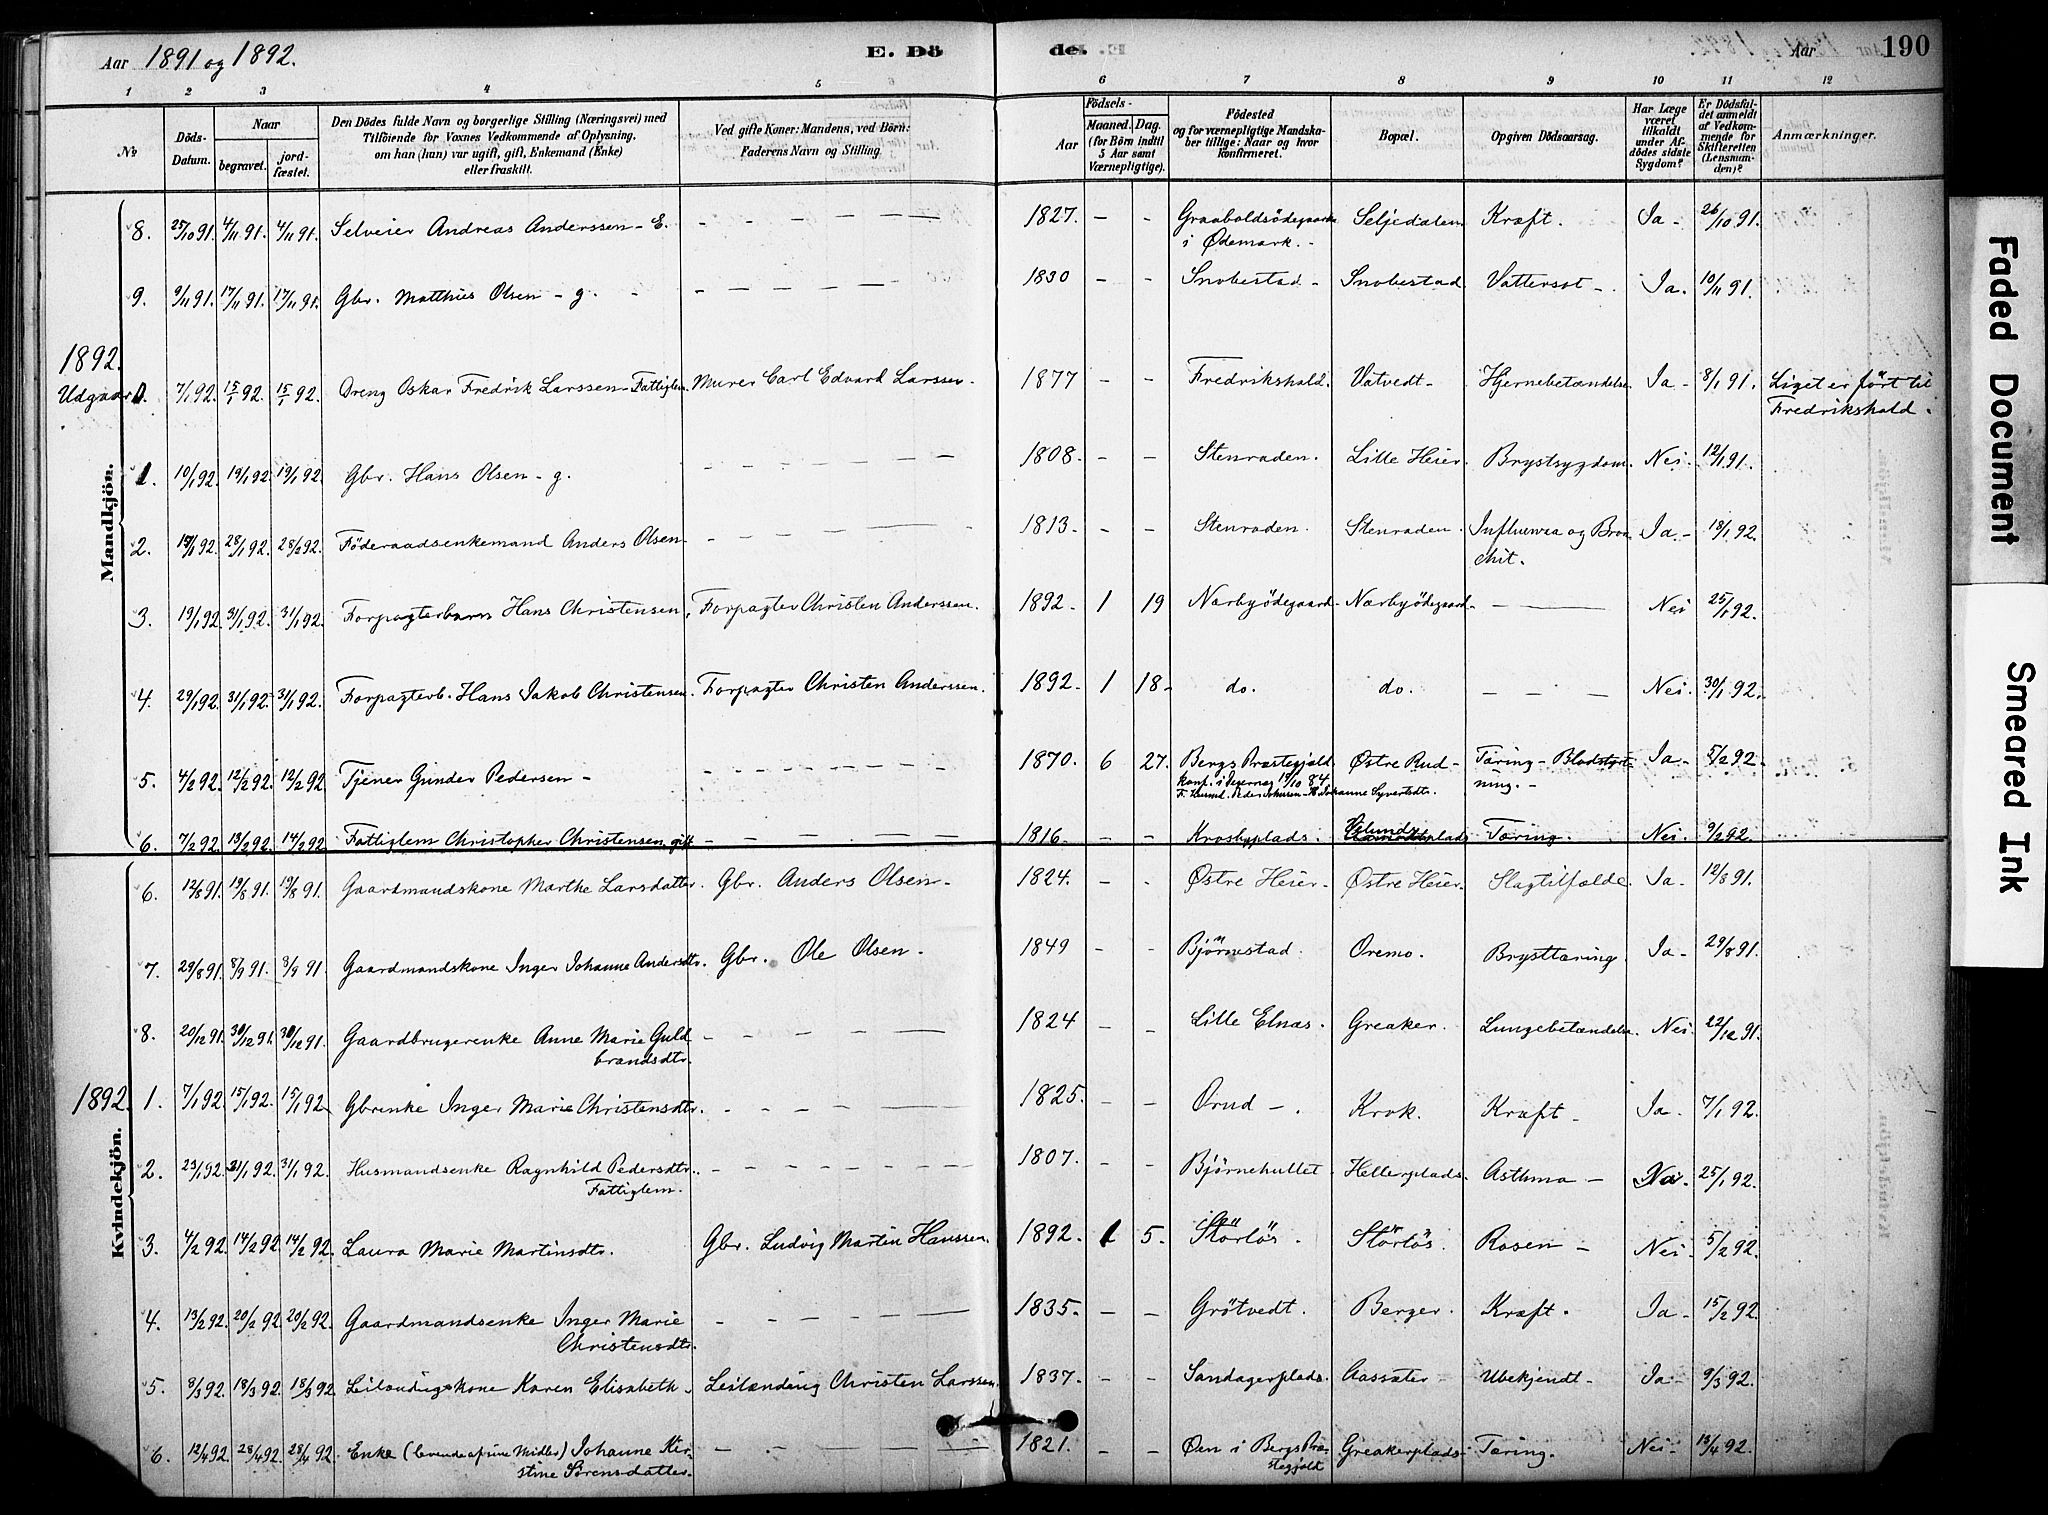 Aar 1891 og 1892. E. Dö de. Aar 190
1 2 3 4 5 6 7 8 9 10 11 12
№ Döds-Datum. Naar begravet. jordfæstet. Den Dödes fulde Navn og borgerlige Stilling (Næringsvei) med Tilföiende for Voxnes Vedkommende af Oplysning, om han (hun) var ugift, gift, Enkemand (Enke) eller fraskilt. Ved gifte Koner: Mandens, ved Börn: Faderens Navn og Stilling Födsels- Aar Maaned. Dag. (for Börn indtil 5 Aar samt Værnepligtige). Födested og for værnepligtige Mandskaber tillige: Naar og hvor konfirmeret. Bopæl. Opgiven Dödsaarsag. Har Læge været tilkaldt under Afdödes sidste Sygdom? Er Dödsfaldet anmeldt af Vedkommende for Skifteretten (Lensmanden)? Anmærkninger.
Mandkjön.
8. 25/10 91. 4/11 91. 4/11 91. Selveier Andreas Anderssen - E. 1827. - - Graaboldsödegaarden i Ødemark. - Seljedalen Kræft. Ja - 26/10 91.
9. 9/11 91. 17/11 91. 17/11 91. Gbr. Matthies Olsen - g. 1830 - - Snobestad - Snobestad Vattersot - Ja. 10/11 91.
1892.
Udgaar 7/1 92. 15/1 92. 15/1 92. Dreng Oskar Fredrik Larssen - Fattiglem. Murer Carl Edvard Larssen. 1877 - - Fredrikshald. Vatvedt - Hjernebetændelse Ja - 8/1 91. Liget er fört til Fredrikshald.
1. 10/1 92. 19/1 92. 19/1 92. Gbr. Hans Olsen - g. 1808. - - Stenraden. Lille Heier. Brystsygdom. Nei. 12/1 91.
2. 28/1 92. 28/2 92. Föderaadsenkemand Anders Olsen - 1813. - - Stenraden. Stenraden. Influensa og Bronchit. Ja - 18/1 92.
3. 19/1 92. 31/1 92. 31/1 92. Forpagterbarn Hans Christensen, Forpagter Christen Anderssen. 1892. 1 19 Nærbyödegaard - Nærbyödegaard - Nei 25/1 92.
4. 29/1 92. 31/1 92. 31/1 92. Forpagterb. Hans Jakob Christensen. Forpagter Christen Anderssen. 1892. 1 18 - do. do. - - - Nei. 30/1 92.
5. 4/2 92. 12/2 92. 12/2 92 Tjener Gunder Pedersen - 1870. 6 27. Bergs Præstegjeld konf. i 19/10 84. Peder Johnsen - Johanne Syvertsdtr. Østre Rud - Tæring - Blodstyrtning. - Ja - 5/2 92 -
6. 7/2 92. 13/2 92 14/2 92 Fattiglem Christopher Christensen, gift - 1816. - - Krosbyplads. Tæring. Nei. 9/2 92.
Kvindekjön.
6. 12/8 91. 19/8 91. 19/8 91. Gaardmandskone Marthe Larsdatter. Gbr. Anders Olsen - 1824. - - Østre Heier - Østre Heier. Slagtilfælde. Ja - 12/8 91.
7. 29/8 91. 8/9 91. 8/9 91. Gaardmandskone Inger Johanne Andersdtr. Gbr. Ole Olsen. 1849 - - Björnestad. Oremo. Brysttæring. Ja - 29/8 91.
8. 20/12 91. 30/12 91. 30/12 91. Gaardbrugerenke Anne Marie Guldbrandsdtr. 1824 - - Lille Elnæs. Greaker. Lungebetændelse Nei 22/12 91.
1892. 1. 7/1 92. 15/1 92. 15/1 92. Gbrenke Inger Marie Christensdtr. 1825. - - Orud -. Krok. Kræft - Ja - 7/1 92.
2. 23/1 92. 31/1 92. 31/1 92. Husmandsenke Ragnhild Pedersdtr. Fattiglem. 1807. - - Björnehullet Hellerplads. Asthma - Nei. 25/1 92.
3. 4/2 92. 14/2 92. 14/2 92. Laura Marie Martinsdtr. Gbr. Ludvig Martin Hanssen. 1892. 1 5. Störlös. Störlös. Rosen - Nei. 5/2 92.
4. 13/2 92. 20/2 92. 20/2 92. Gaardmandsenke Inger Marie Christensdtr. 1835. - - Grötvedt. Berger. Kræft. Ja - 15/2 92.
5. 8/3 92. 18/3 92. 18/3 92 Leilændingskone Karen Elisabeth - Leilænding Christen Larssen. 1837. - - Sandagerplads. Aassæter - Ubekjendt - Ja - 9/3 92.
6. 12/4 92. 28/4 92. 28/4 92. Enke (levende af sine Midler) Johanne Kirstine Sörensdatter. 1821. - - Øen i Bergs Præstegjeld Greakerplads - Tæring. Nei - 13/4 92.
Faded Document
Smeared Ink